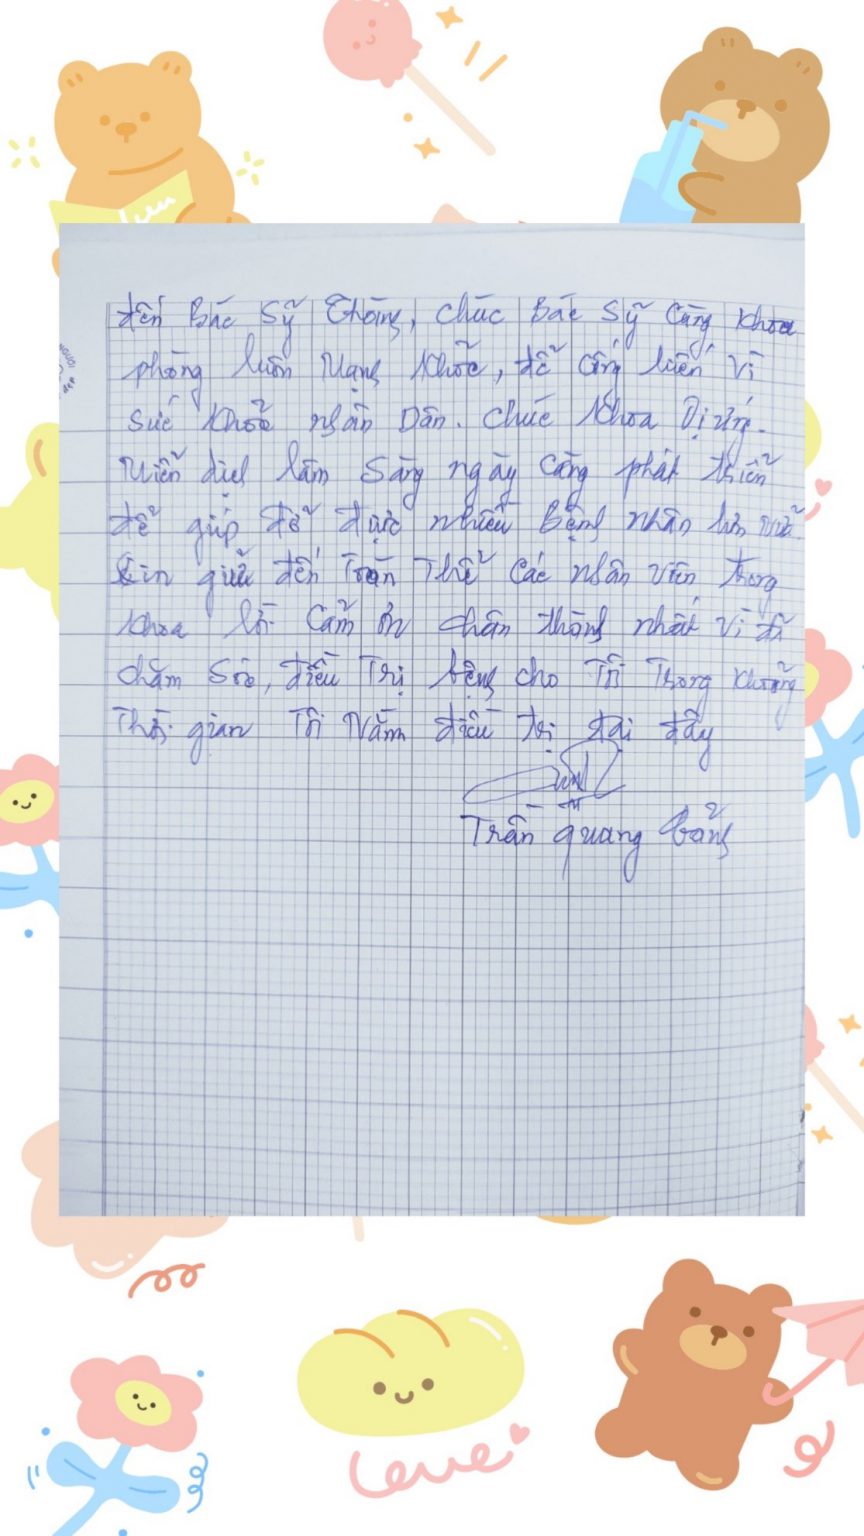 leen
đến Bác Sỹ Thắng, chúc Bác Sỹ Cùng Khoa
phòng luôn Mạnh Khỏe, để cống hiến Vì
Sức Khỏe nhân Dân. Chúc Khoa Dị ứng-
Miễn dịch lâm Sàng ngày Càng phát triển
để giúp đỡ được nhiều Bệnh nhân hơn nữa.
Xin gửi đến Toàn Thể Các nhân viên trong
Khoa lời Cảm ơn chân thành nhất Vì đã
chăm Sóc, điều Trị bệnh cho Tôi Trong khoảng
Thời gian Tôi Nằm điều trị tại đây
Trần quang bằng
Leue